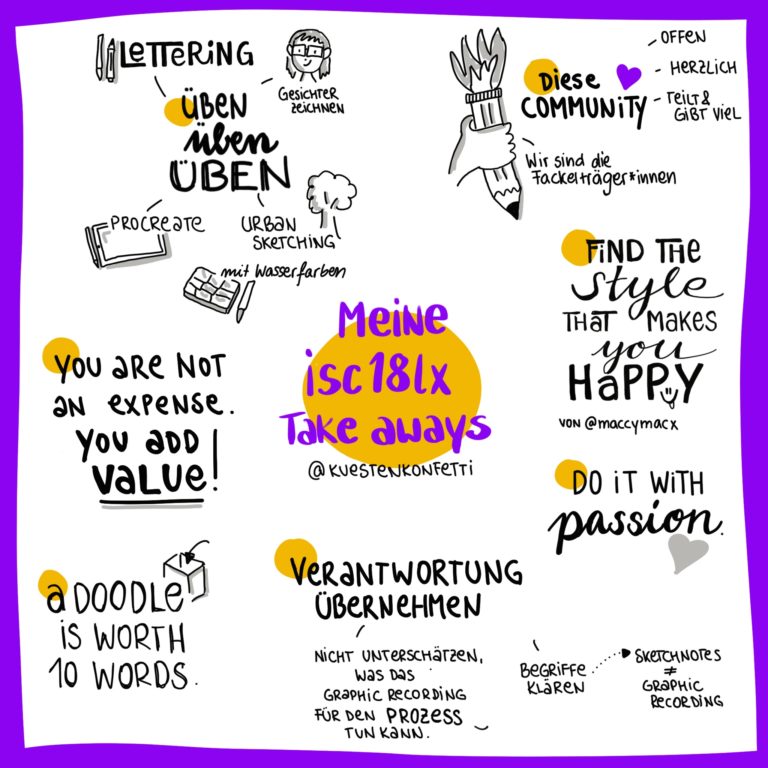 LETTERING
GESICHTER
ZEICHNEN
ÜBEN
üben
ÜBEN
PROCREATE
URBAN
SKETCHING
mit Wasserfarben
Diese
COMMUNITY
OFFEN
HERZLICH
TEILT &
GIBT VIEL
Wir sind die
Fackelträger*innen
FIND THE
style
THAT MAKES
you
HAPPY
VON @maccymacx
Meine
isc18lx
Take aways
@KUESTENKONFETTI
YOU ARE NOT
AN EXPENSE.
YOU ADD
VALUE!
DO IT WITH
passion.
a DOODLE
IS WORTH
10 WORDS.
VERANTWORTUNG
ÜBERNEHMEN
NICHT UNTERSCHÄTZEN,
WAS DAS
GRAPHIC RECORDING
FÜR DEN PROZESS
TUN KANN.
BEGRIFFE
KLÄREN
SKETCHNOTES
≠
GRAPHIC
RECORDING